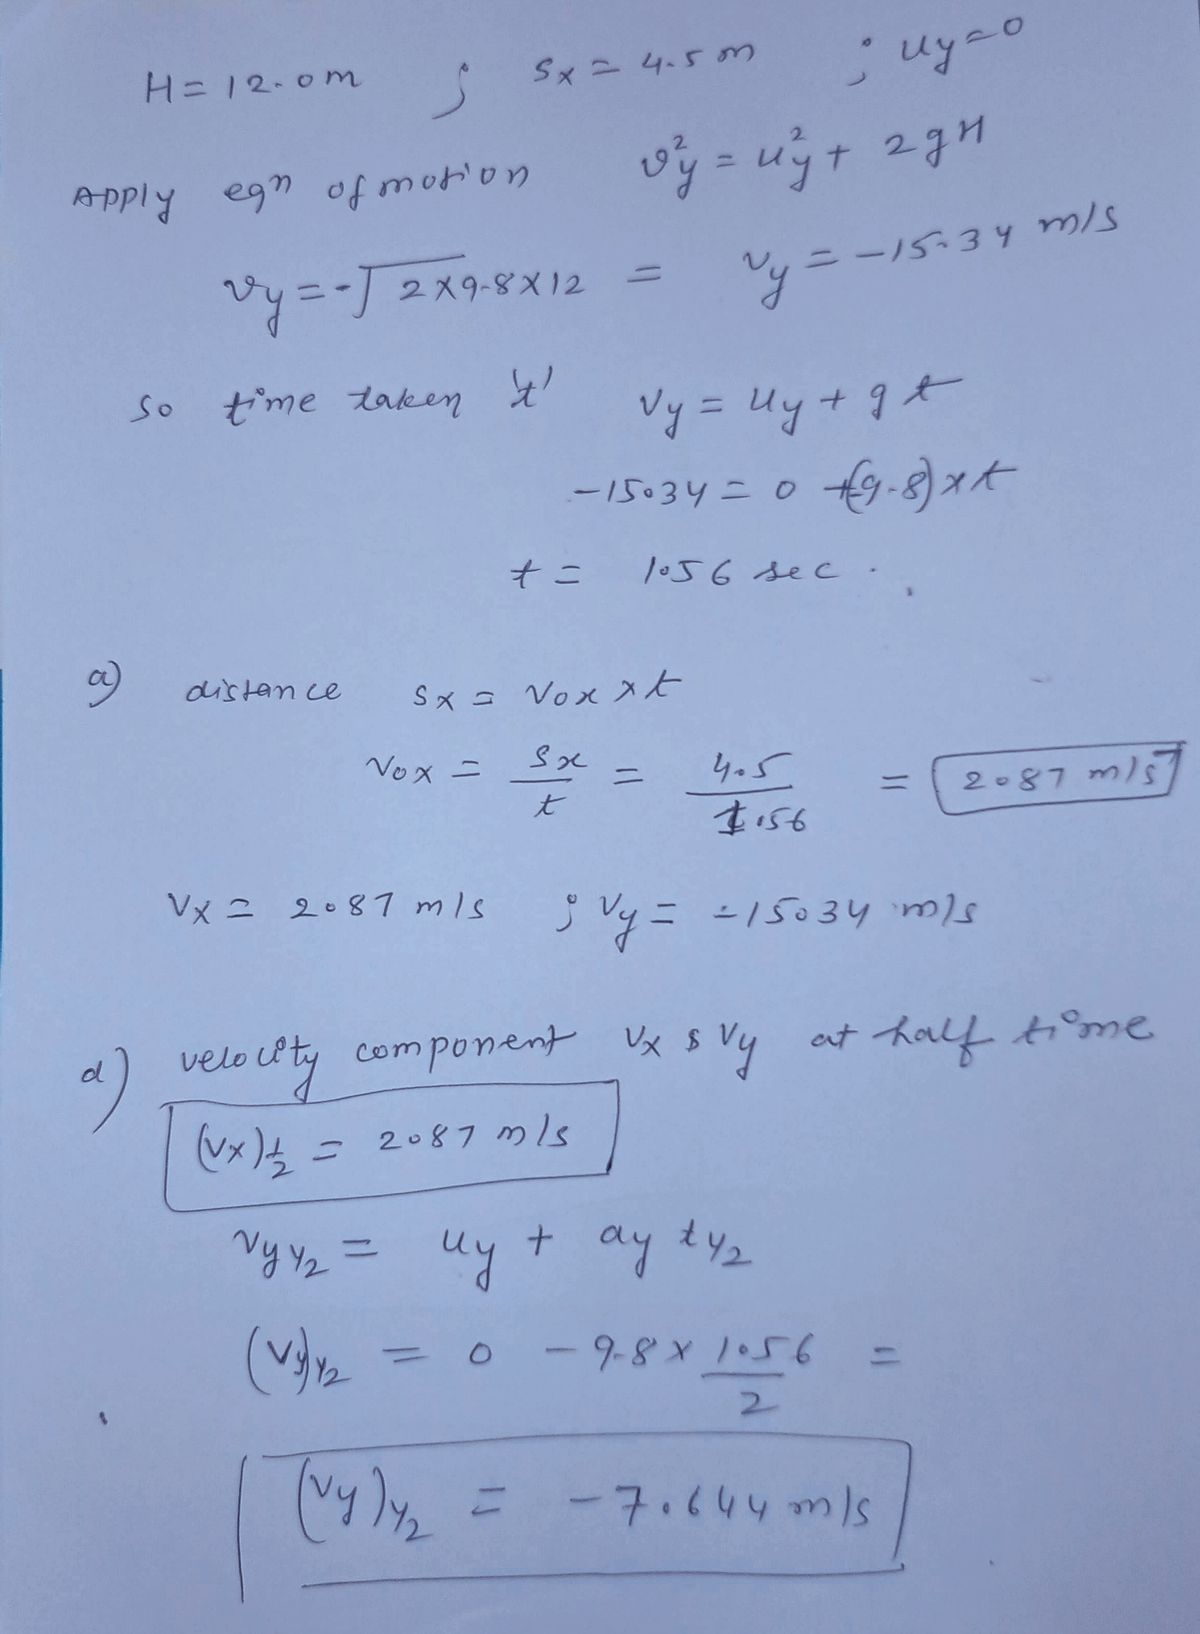 H = 12.0m ; Sx = 4.5 m ; uy = 0
Apply eqn of motion vy² = uy² + 2gH
vy = -√2×9.8×12 = vy = -15.34 m/s
so time taken 't' vy = uy + gt
-15.34 = 0 +(-9.8)×t
t = 1.56 sec.
a) distance Sx = Vox × t
Vox = Sx/t = 4.5/1.56 = 2.87 m/s
Vx = 2.87 m/s ; Vy = -15.34 m/s
d) velocity component Vx & Vy at half time
(Vx)½ = 2.87 m/s
Vy ½ = uy + ay t½
(Vy)½ = 0 - 9.8 × 1.56/2 =
(Vy)½ = -7.644 m/s